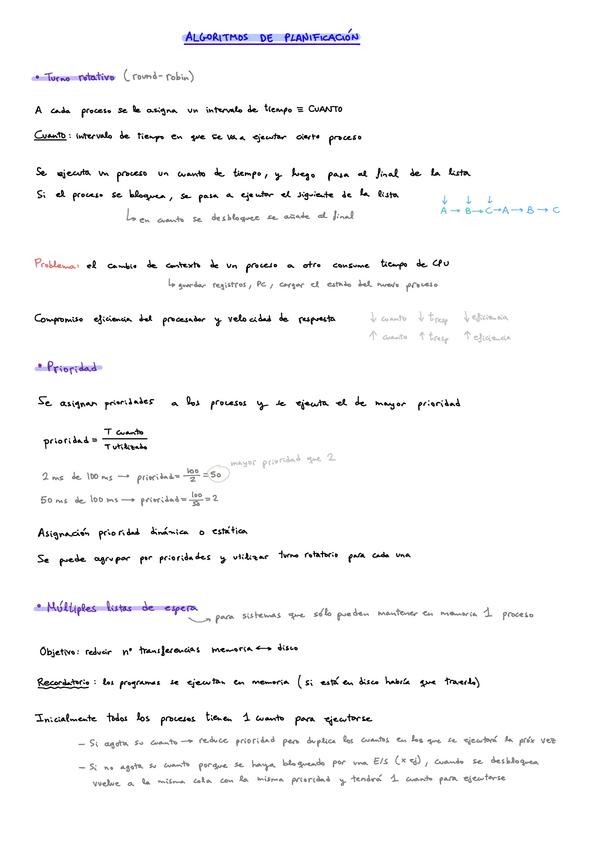 ALGORITMOS DE PLANIFICACIÓN
• Turno rotativo (round-robin)
A cada proceso se le asigna un intervalo de tiempo ≡ CUANTO
Cuanto: intervalo de tiempo en que se va a ejecutar cierto proceso
Se ejecuta un proceso un cuanto de tiempo, y luego pasa al final de la lista
Si el proceso se bloquea, se pasa a ejecutar el siguiente de la lista
↓ ↓ ↓
A → B → C → A → B → C
↳ en cuanto se desbloquee se añade al final
Problema: el cambio de contexto de un proceso a otro consume tiempo de CPU
↳ guardar registros, PC, cargar el estado del nuevo proceso
Compromiso eficiencia del procesador y velocidad de respuesta
↓ cuanto ↓ tresp ↓ eficiencia
↑ cuanto ↑ tresp ↑ eficiencia
• Prioridad
Se asignan prioridades a los procesos y se ejecuta el de mayor prioridad
prioridad = T cuanto / T utilizado
mayor prioridad que 2
2 ms de 100 ms → prioridad = 100/2 = 50
50 ms de 100 ms → prioridad = 100/50 = 2
Asignación prioridad dinámica o estática
Se puede agrupar por prioridades y utilizar turno rotatorio para cada una
• Múltiples listas de espera
para sistemas que sólo pueden mantener en memoria 1 proceso
Objetivo: reducir nº transferencias memoria ↔ disco
Recordatorio: los programas se ejecutan en memoria (si está en disco habría que traerlo)
Inicialmente todos los procesos tienen 1 cuanto para ejecutarse
– Si agota su cuanto → reduce prioridad pero duplica los cuantos en los que se ejecutará la próx vez
– Si no agota su cuanto porque se haya bloqueado por una E/S (x ej), cuando se desbloquea
vuelve a la misma cola con la misma prioridad y tendrá 1 cuanto para ejecutarse